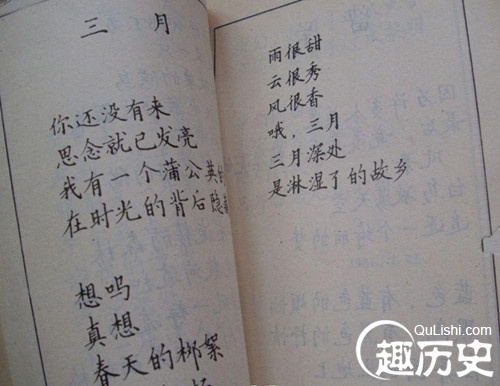 三 月
你还没有来
思念就已发亮
我有一个蒲公英
在时光的背后隐
想吗
真想
春天的柳絮
雨很甜
云很秀
风很香
哦，三月
三月深处
是淋湿了的故乡
QuLishi.com
趣历史